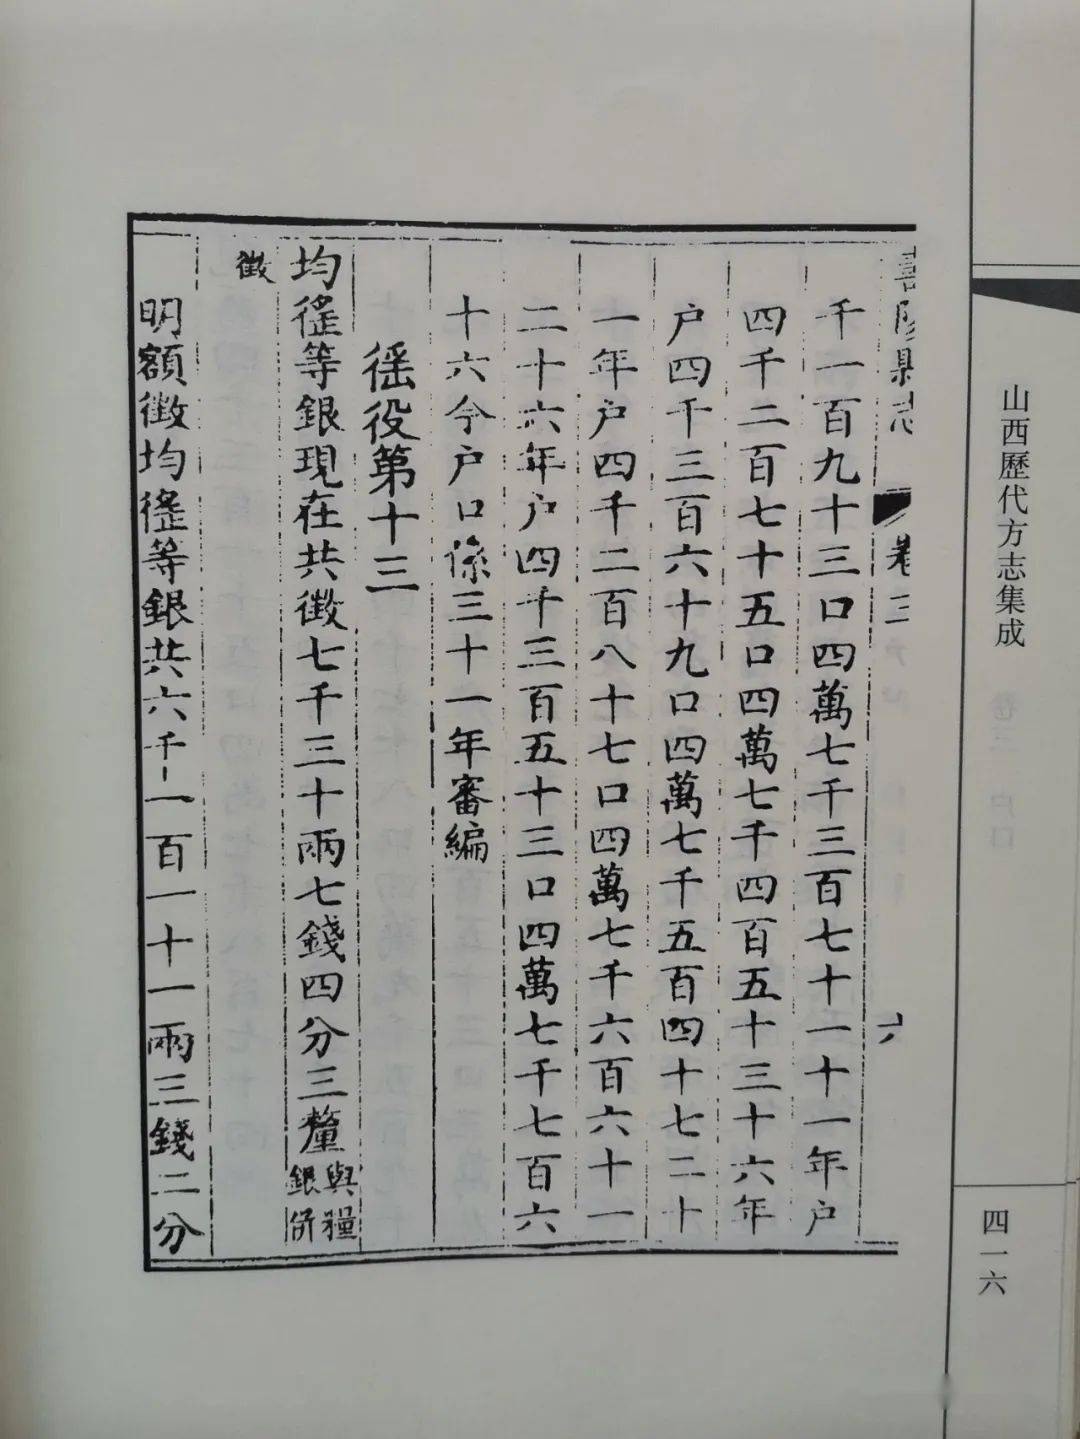 山西歷代方志集成
卷三 户口
四一六
壽陽縣志 卷三 六
千一百九十三口四萬七千三百七十一十一年户
四千二百七十五口四萬七千四百五十三十六年
户四千三百六十九口四萬七千五百四十七二十
一年户四千二百八十七口四萬七千六百六十一
二十六年户四千三百五十三口四萬七千七百六
十六今户口係三十一年審編
徭役第十三
均徭等銀現在共徵七千三十兩七錢四分三釐與糧銀併
徵
明額徵均徭等銀共六千一百一十一兩三錢二分